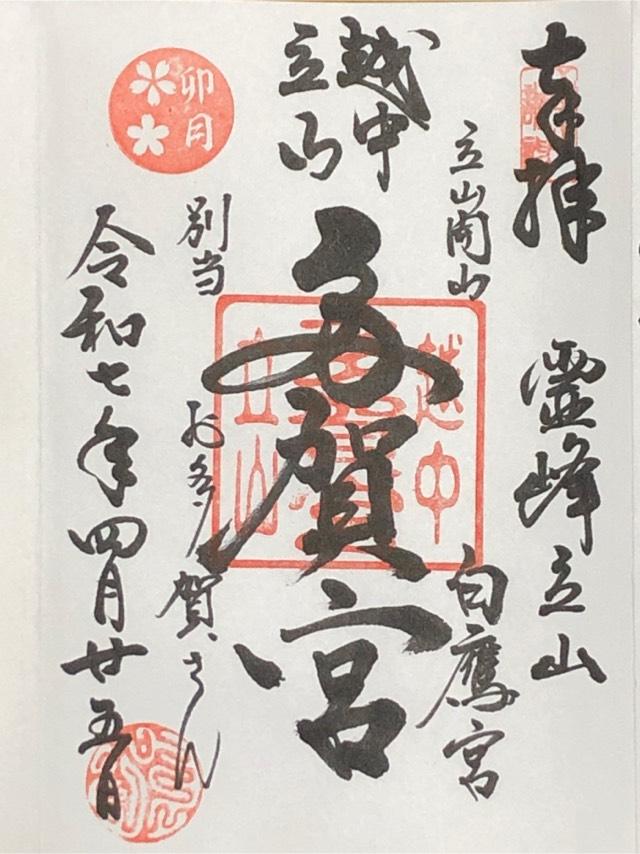 奉拝
霊峰立山
立山開山
白鷹宮
越中
立山
多賀宮
越中
立山
別当
お多賀さん
卯月
令和七年四月廿五日